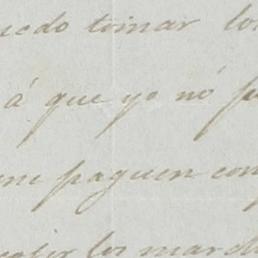 uedo tomar lo
á que yo nó p
me paguen con
los mard